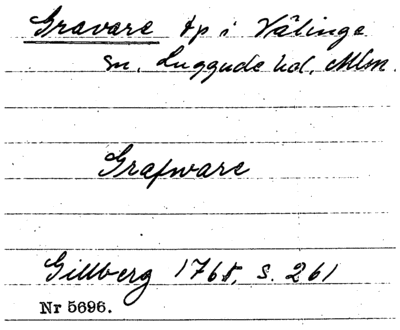 Gravare tp i Välinge
sn. Luggude hd. Mlm.
Grafware
Gillberg 1765, s. 261
Nr 5696.